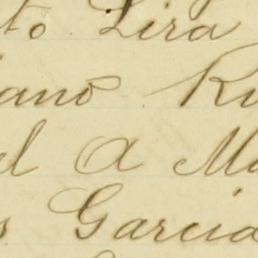 to Lira
iano Ru
el A Ma
s Garcia